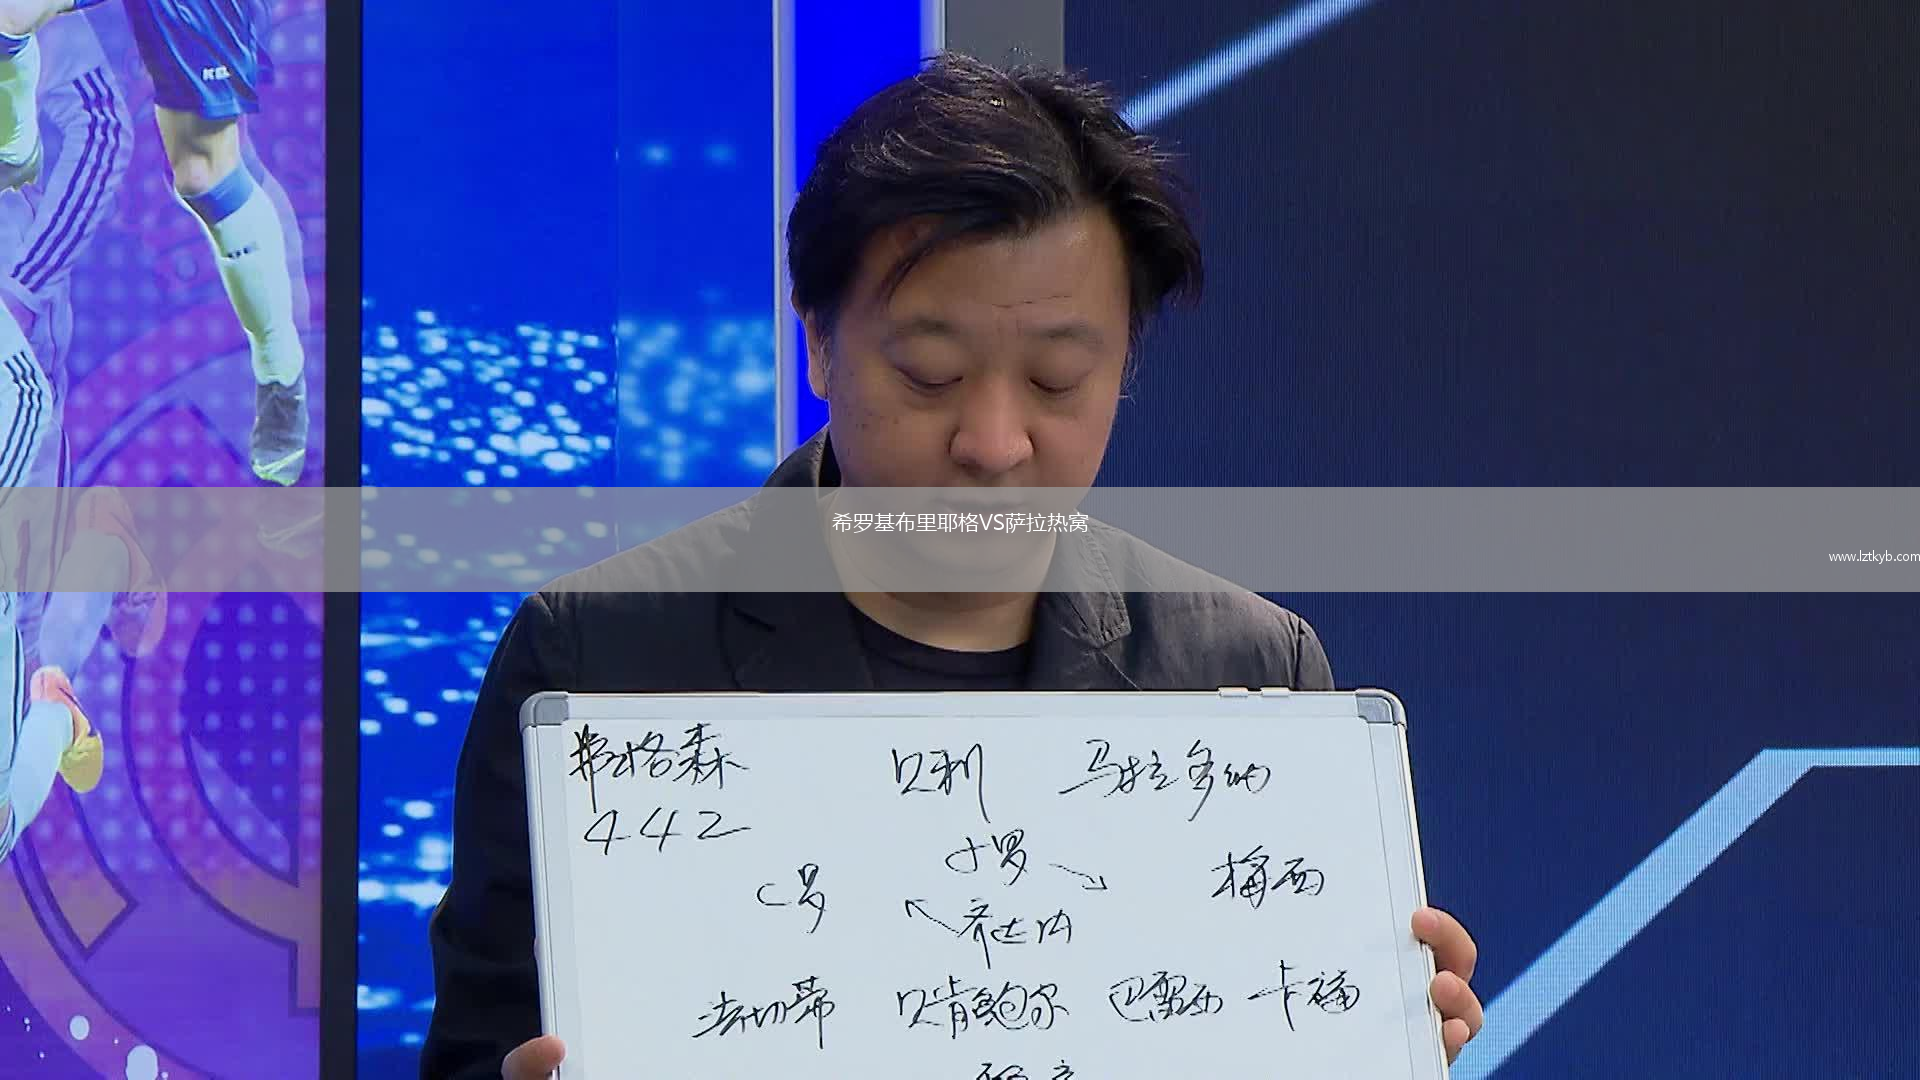 KELME
希罗基布里耶格VS萨拉热窝
www.lztkyb.com
弗格森 贝利 马拉多纳
442
小罗
C罗 梅西
齐达内
法切蒂 贝肯鲍尔 巴雷西 卡福